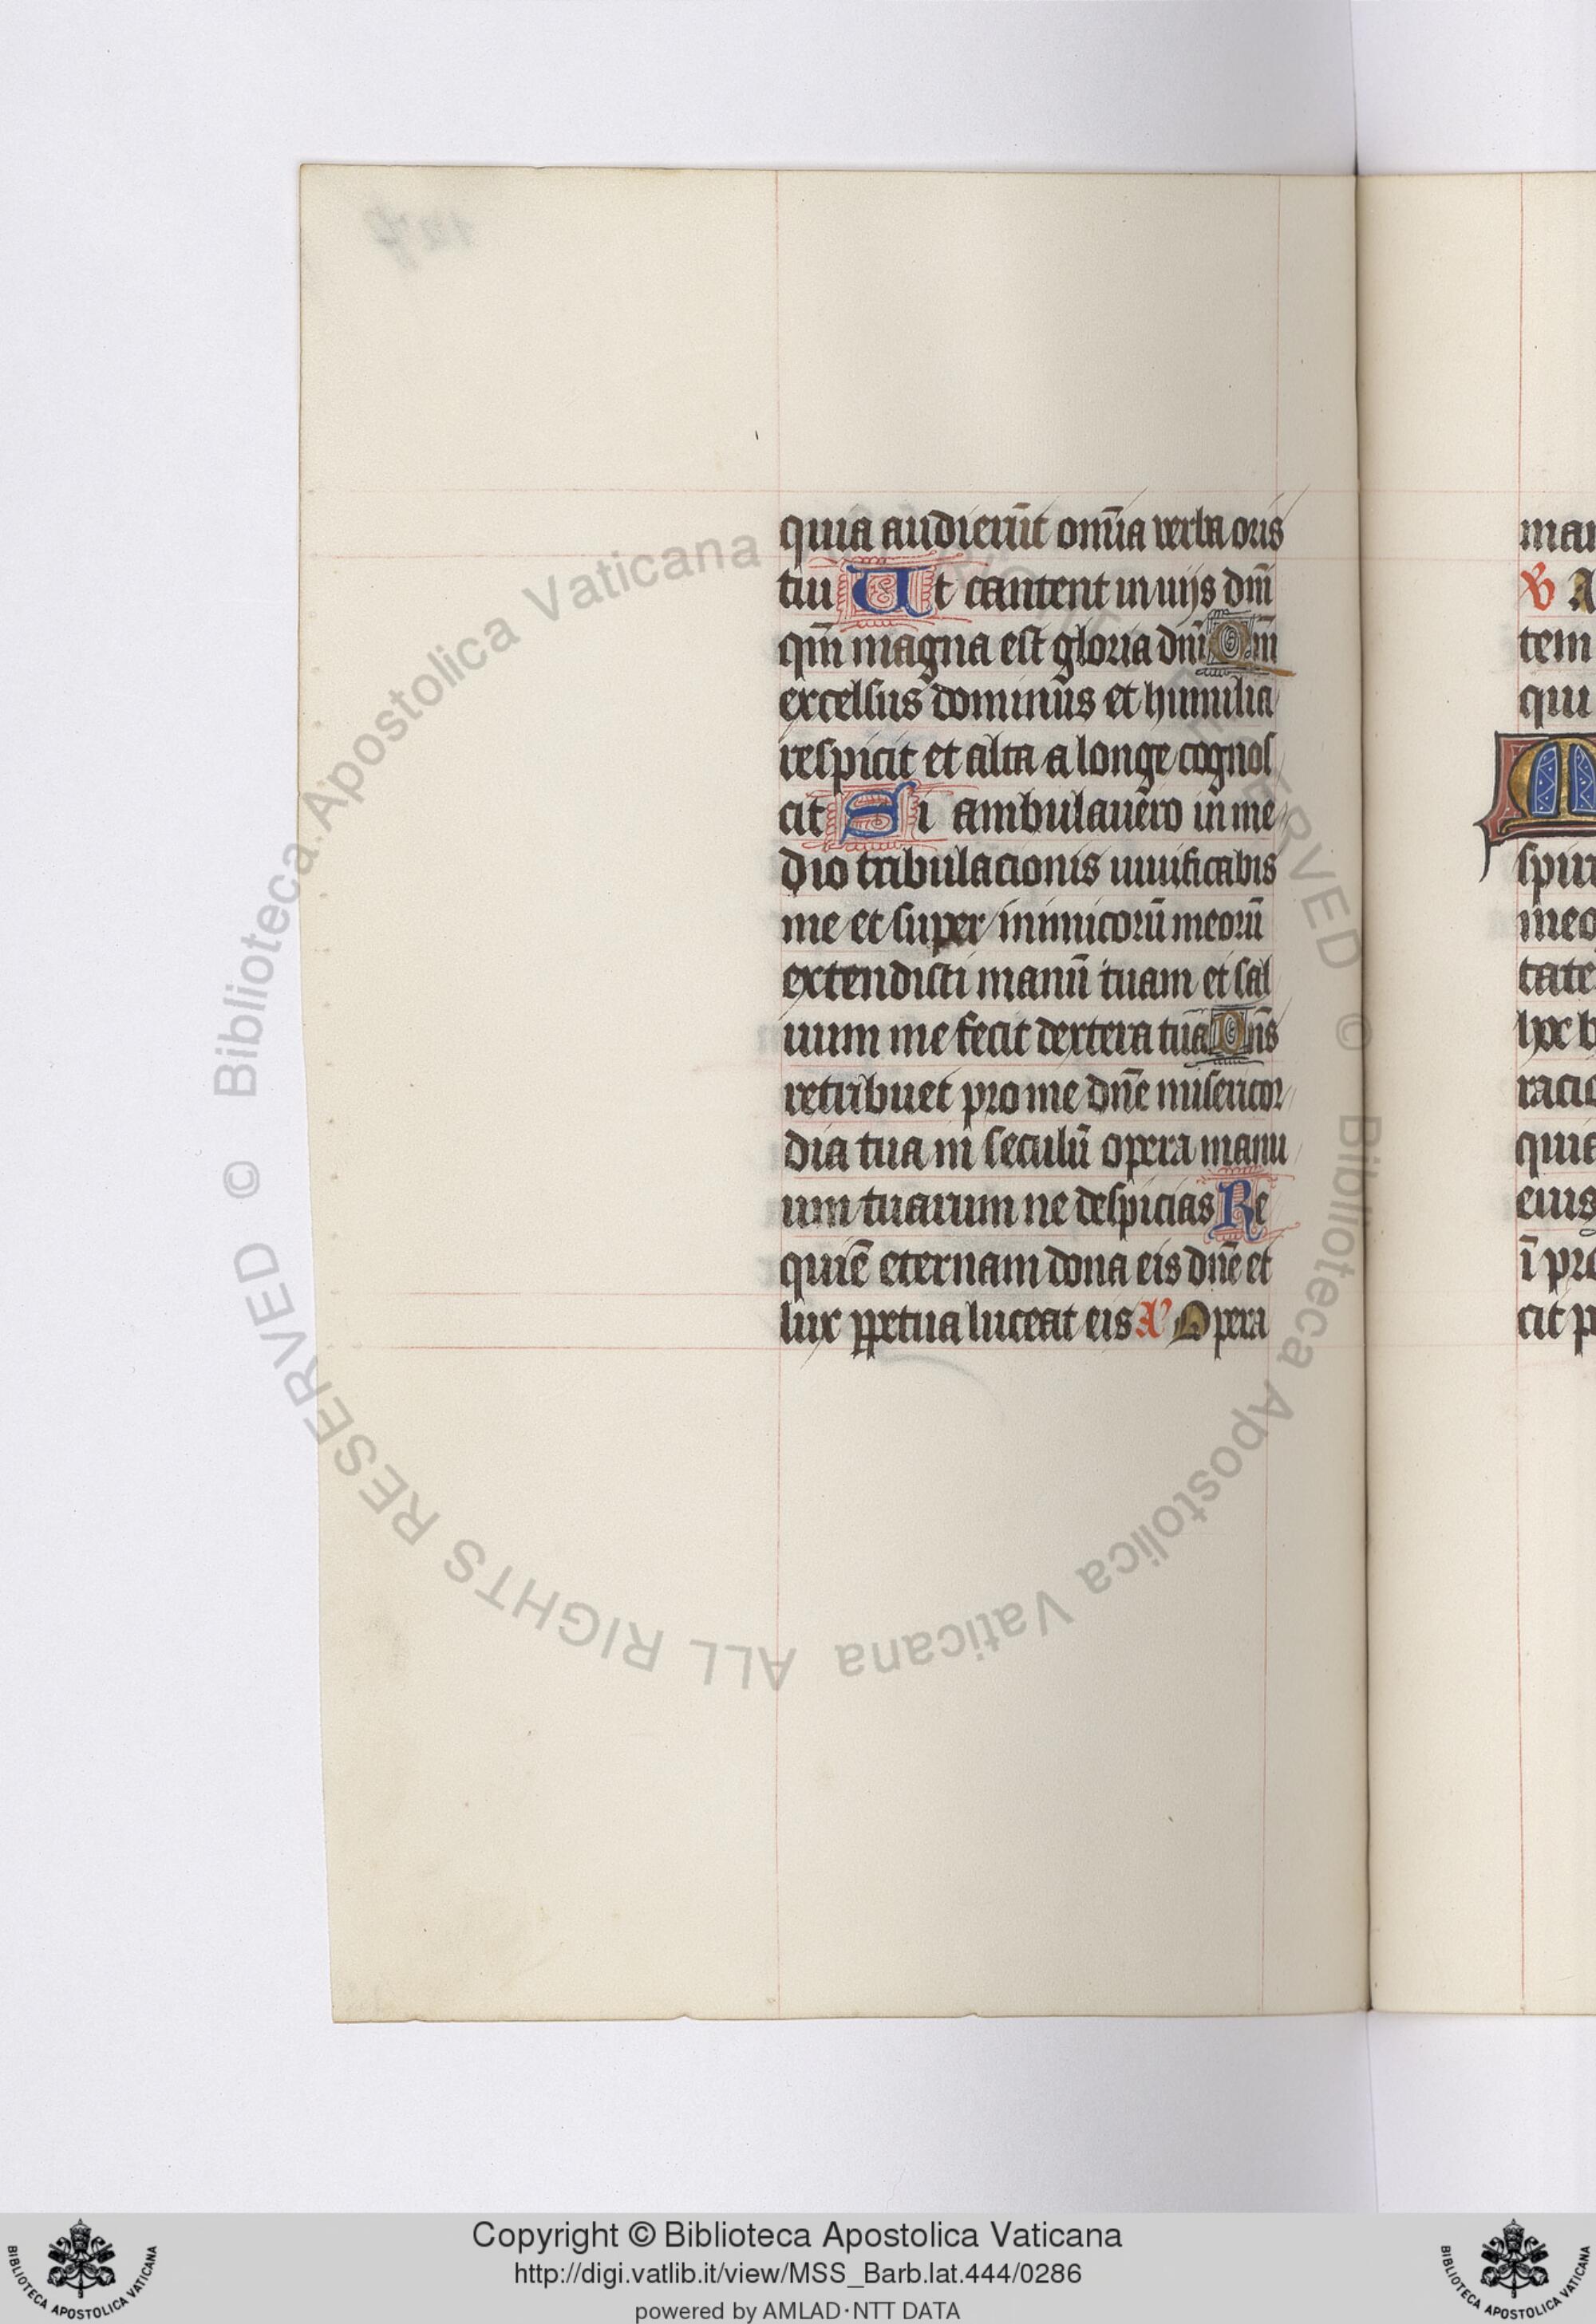 quia audieru̅t om̅ia verba oris
tui Ut cantent in uijs dn̅i
qm̅ magna est gloria dn̅i Qm̅
excelsus dominus et humilia
respicit et alta a longe cognos
cit Si ambulauero in me
dio tribulacionis uiuificabis
me et super inimicoru̅ meoru̅
extendisti manu̅ tuam et sal
uum me fecit dextera tua Dn̅s
retribuet pro me dn̅e misericor
dia tua in seculu̅ opera manu
um tuarum ne despicias Re
quie̅ eternam dona eis dn̅e et
lux ꝑpetua luceat eis A̕ Opera
mar
℟ A
tem
qui
M
spiri
meo
tate
hoc b
racio
quia
eius
i̅ pro
cit p
Biblioteca Apostolica Vaticana
ALL RIGHTS RESERVED ©
Biblioteca Apostolica Vaticana
RESERVED ©
Copyright © Biblioteca Apostolica Vaticana
http://digi.vatlib.it/view/MSS_Barb.lat.444/0286
powered by AMLAD·NTT DATA
BIBLIOTECA APOSTOLICA VATICANA
BIBLIOTECA APOSTOLICA VATICANA